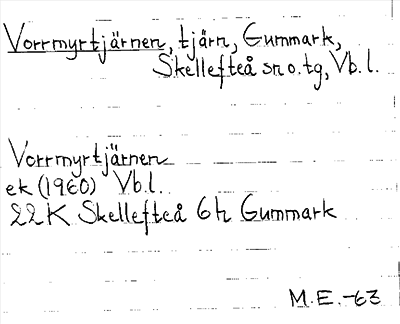 Vorrmyrtjärnen, tjärn, Gummark,
Skellefteå sn o. tg, Vb. l.
Vorrmyrtjärnen
ek (1960) Vb. l.
22 K Skellefteå 6 h Gummark
M. E. -63